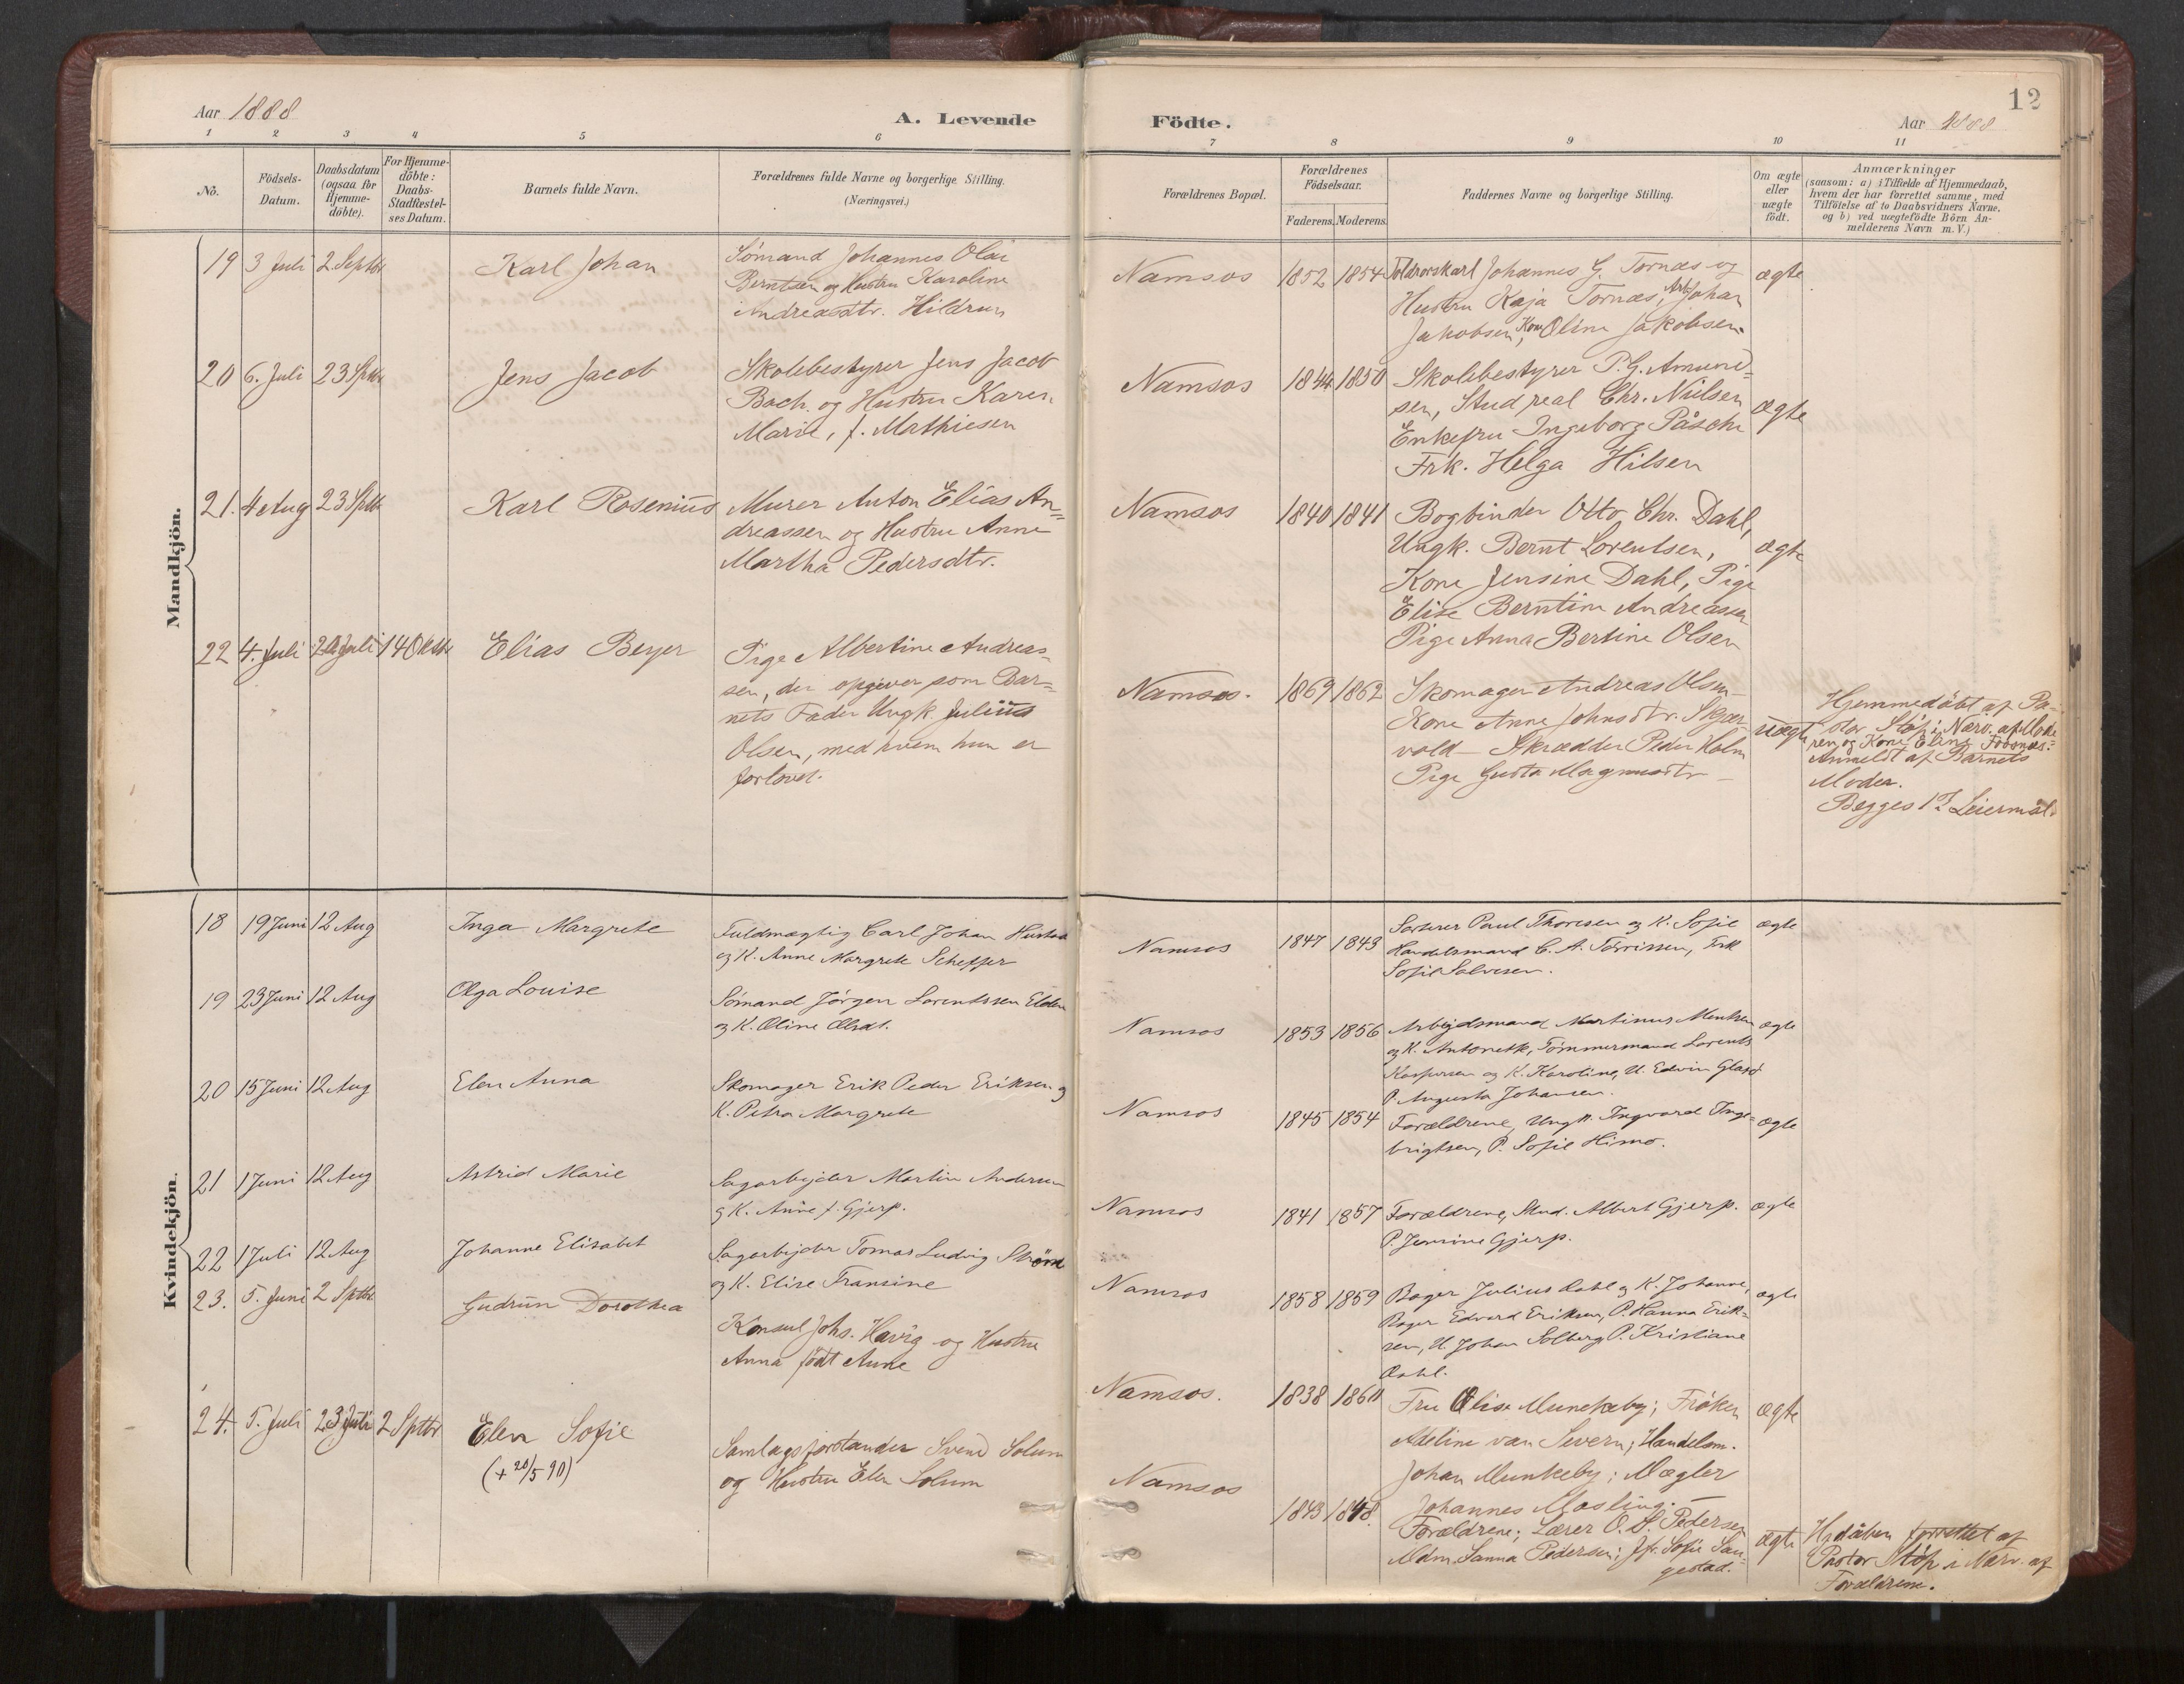 Aar 1888
A. Levende
Födte.
12
Aar 1888
1 2 3 4 5 6 7 8 9 10 11
No.
Födsels-Datum.
Daabsdatum (ogsaa for Hjemme-döbte).
For Hjemme-döbte: Daabs-Stadfæstel-ses Datum.
Barnets fulde Navn.
Forældrenes fulde Navne og borgerlige Stilling.
(Næringsvei.)
Forældrenes Bopæl.
Forældrenes Födselsaar.
Faderens. Moderens.
Faddernes Navne og borgerlige Stilling.
Om ægte eller uægte födt.
Anmærkninger
(saasom: a) i Tilfælde af Hjemmedaab,
hvem der har forrettet samme, med
Tilföielse af to Daabsvidners Navne,
og b) ved uægtefödte Börn An-
melderens Navn m. V.)
Mandkjön.
19 3 Juli 2. Septbr Karl Johan
Sömand Johannes Olai
Berntsen og Hustru Karoline
Andreasdtr. Hildrum
Namsos 1852 1854
Toldrorskarl Johannes G. Tornæs og
Hustru Kaja Tornæs, Arb. Johan
Jakobsen, Kone Oline Jakobsen.
ægte
20 6. Juli 23 Sptbr Jens Jacob
Skolebestyrer Jens Jacob
Bach og Hustru Karen
Marie, f. Mathiesen
Namsos 1844 1850
Skolebestyrer P. G. Amund=
sen, Stud real Chr. Nielsen
Enkefru Ingeborg Påsche
Frk. Helga Hilsen
ægte
21. 4 Aug 23 Sptbr Karl Rosenius
Murer Anton Elias An=
dreassen og Hustru Anne
Martha Pedersdtr.
Namsos 1840 1841
Bogbinder Otto Chr. Dahl,
Ungk. Bernt Lorentsen,
Kone Jensine Dahl, Pige
Elise Berntine Andreassen
Pige Anna Bertine Olsen
ægte
22 4. Juli 20 Juli 14 Oktbr Elias Beyer
Pige Albertine Andreas-
sen, der opgiver som Bar=
nets Fader Ungk. Julius
Olsen, med hvem hun er
forlovet.
Namsos. 1869 1862
Skomager Andreas Olsen
Kone Anne Johnsdtr. Skjær-
vold Skrædder Peder Holm
Pige Gusta Magnusdtr
uægte
Hjemmedöbt af Pa-
stor Stöp i Nærv. af Mode
ren og Kone Eline Fosnæs.
Anmeldt af Barnets
Moder.
Begges 1ste Leiermål.
Kvindekjön.
18 19 Juni 12 Aug Inga Margrete
Fuldmægtig Carl Johan Hustad
og K. Anne Margrete Scheffer
Namsos 1847 1843
Sorterer Paul Thoresen og K. Sofie
Handelsmand C. A. Sörrissen, Frk
Sofie Salvesen.
ægte
19 23 Juni 12 Aug Olga Louise
Sömand Jörgen Lorentssen Elden
og K. Oline Olsdt.
Namsos 1853 1856
Arbejdsmand Martinus
og K. Antonette, Tömmermand Lorents
Kaspersen og K. Karoline, U. Edvin
P. Augusta Johansen.
ægte
20 15 Juni 12 Aug Elen Anna
Skomager Erik Peder Eriksen og
K. Petra Margrete
Namsos 1845 1854
Forældrene, Ungk. Ingvard Inge=
brigtsen, P. Sofie Himo.
ægte
21 1 Juni 12 Aug Astrid Marie
Sagarbejder Martin Andersen
og K. Anne f. Gjerp.
Namsos 1841 1857
Forældrene, Stud. Albert Gjerp.
P. Jensine Gjerp.
ægte
22 1 Juli 12 Aug Johanne Elisabet
Sagarbejder Tomas Ludvig
og K. Elise Fransine
Namsos 1858 1859
Bager Julius Dahl og K. Johanne,
Bager Edvard Eriksen, P. Hanna Erik=
sen, U. Johan Solberg P. Kristiane
Dahl.
ægte
23. 5. Juni 2 Sptbr Gudrun Dorothea
Konsul Johs. Havig og Hustru
Anna födt Aune
Namsos. 1838 1860
Fru Elise Munkeby; Fröken
Adeline van Severn; Handelsm.
Johan Munkeby; Mægler
Johannes Mosling.
ægte
24. 5. Juli 23 Juli 2 Sptbr Elen Sofie
(+ 20/5 90)
Samlagsforstander Svend Solum
og Hustru Elen Solum
Namsos 1843 1848.
Forældrene; Lærer O. S. Pedersen
Mdm. Sanna Pedersen; Jfr. Sofie San-
gestad.
ægte
Hjdåben forrettet af
Pastor Stöp i Nærv. af
Forældrene.